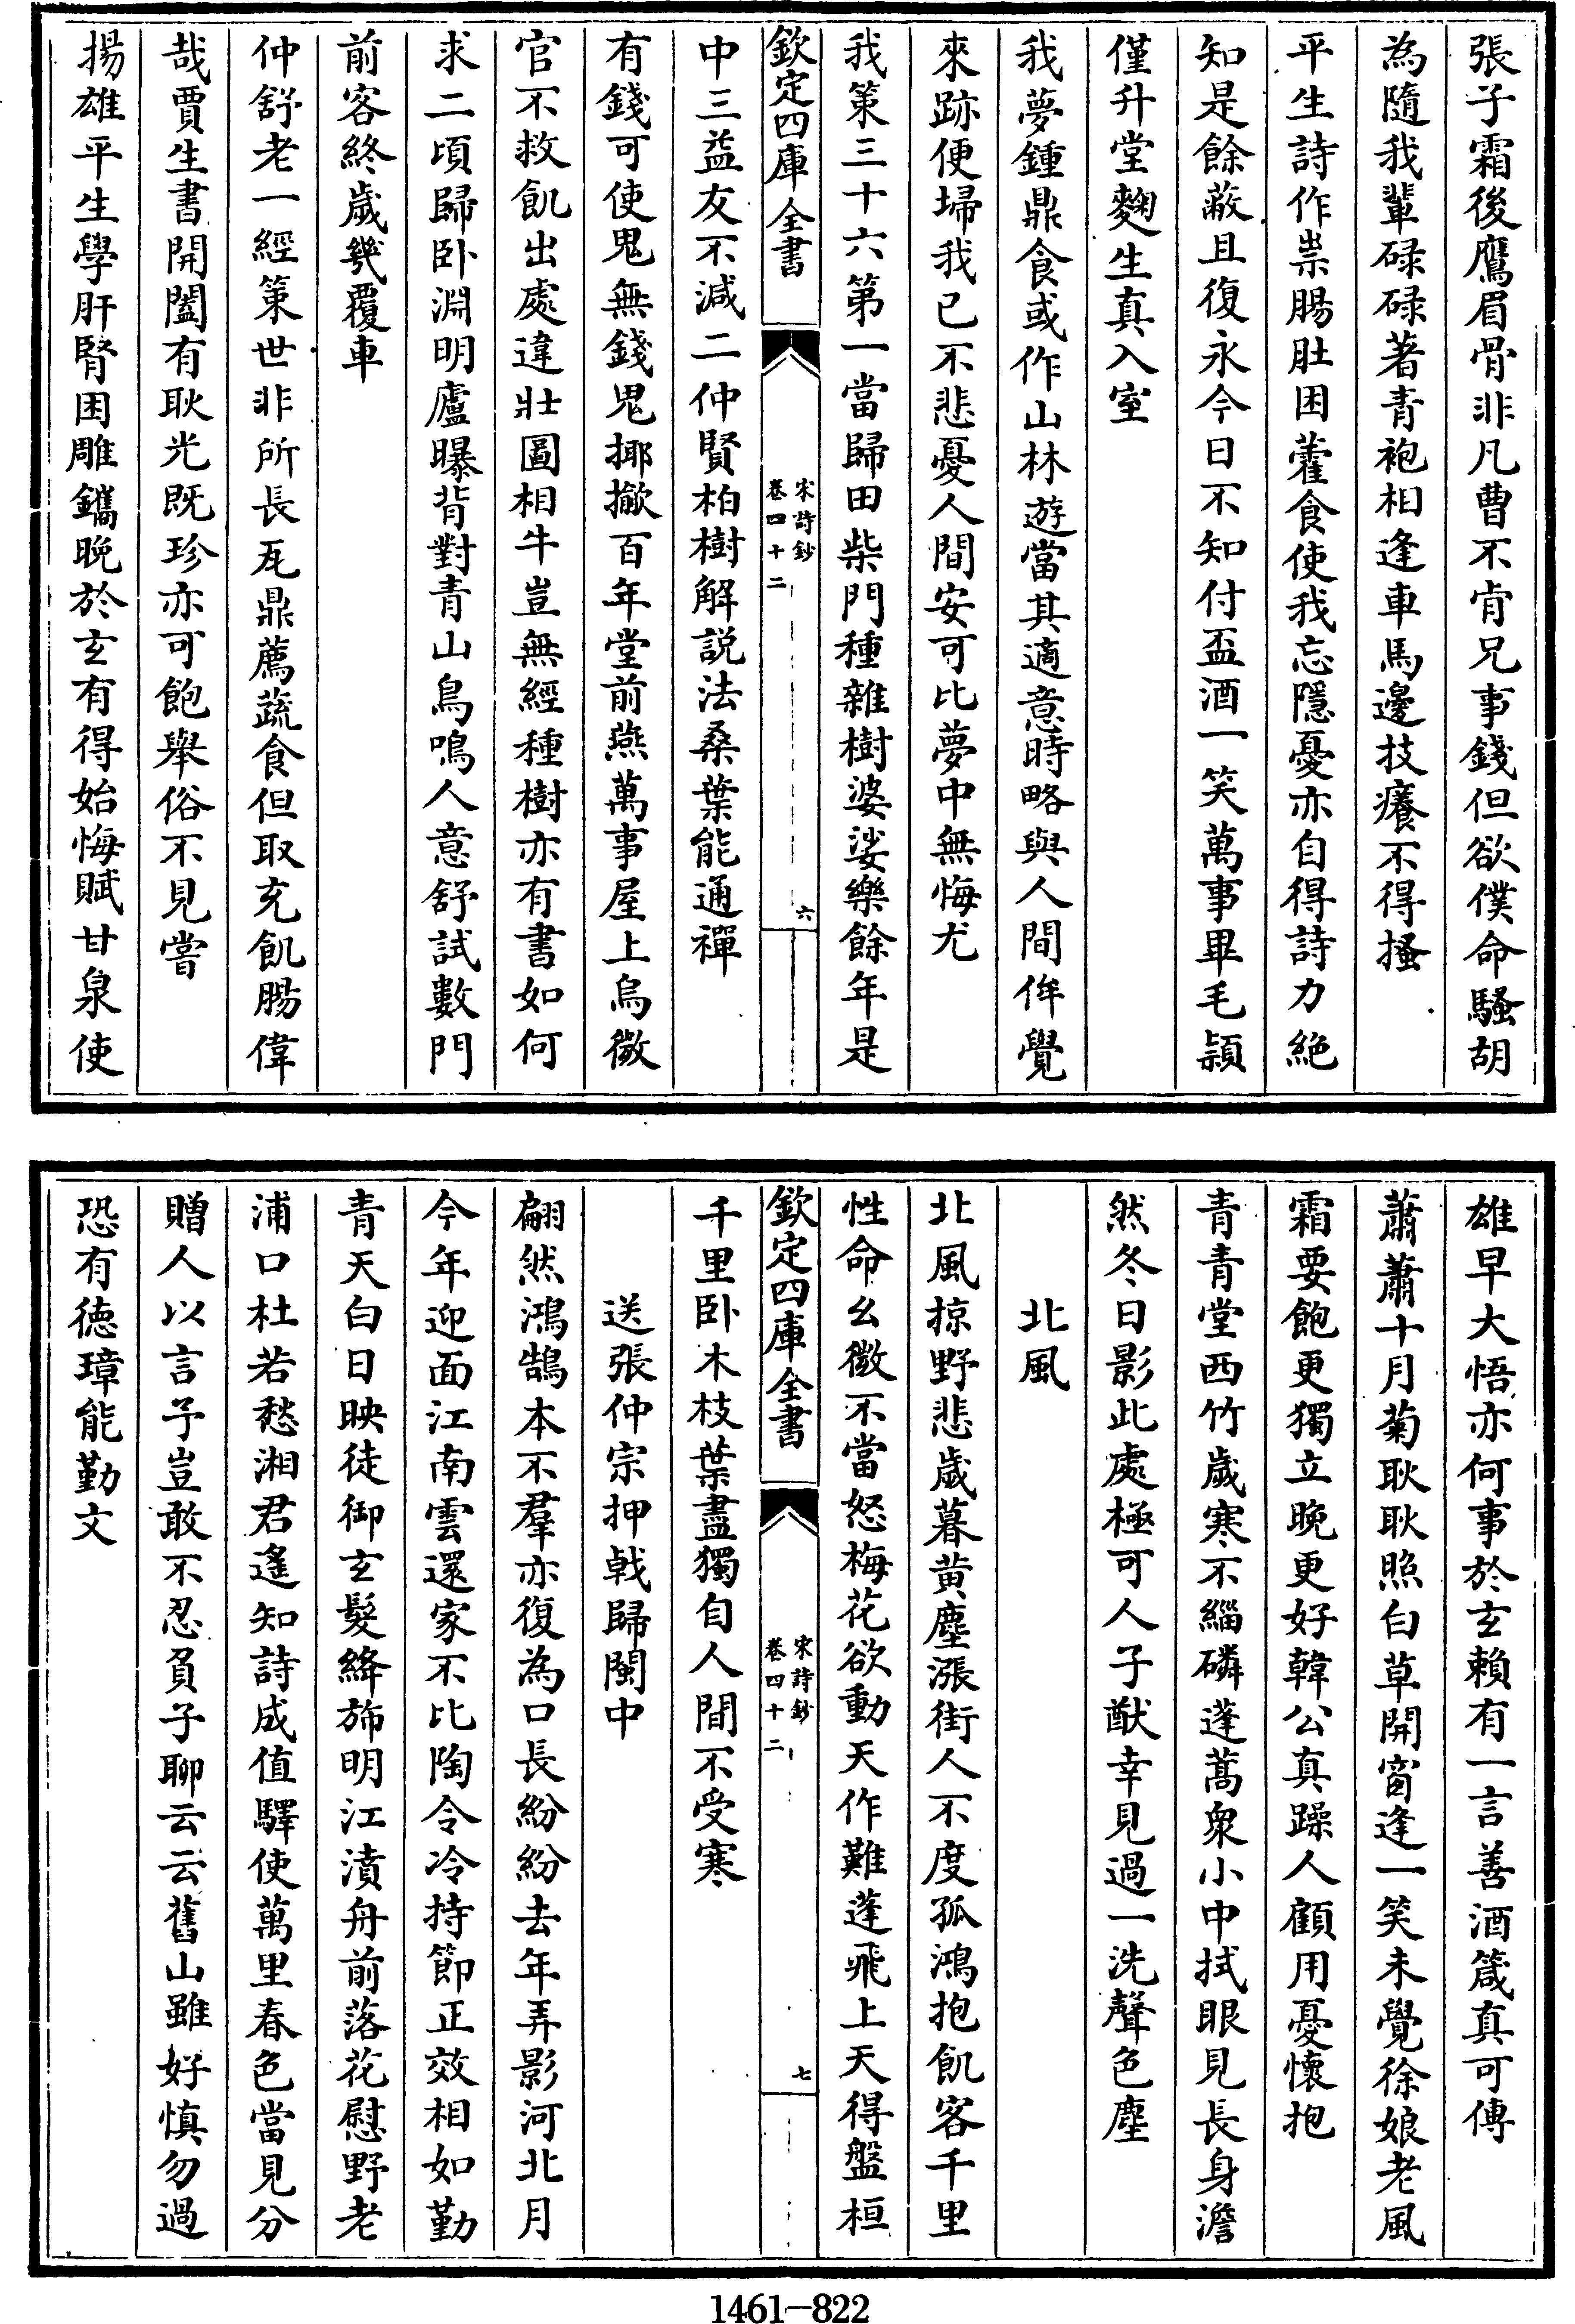 張子霜後鷹眉骨非凡曹不肯兄事錢但欲僕命騷胡
為隨我輩碌碌著青袍相逢車馬邊技癢不得搔
平生詩作祟腸肚困藿食使我忘隱憂亦自得詩力絶
知是餘蔽且復永今日不知付盃酒一笑萬事畢毛頴
僅升堂麴生真入室
我夢鍾鼎食或作山林遊當其適意時略與人間侔覺
來跡便埽我已不悲憂人間安可比夢中無悔尤
我策三十六第一當歸田柴門種雜樹婆娑樂餘年是
欽定四庫全書
宋詩鈔
卷四十二
六
中三益友不減二仲賢柏樹解説法桑葉能通禪
有錢可使鬼無錢鬼揶揄百年堂前燕萬事屋上烏微
官不救飢出處違壯圖相牛豈無經種樹亦有書如何
求二頃歸卧淵明廬曝背對青山鳥鳴人意舒試數門
前客終歲幾覆車
仲舒老一經策世非所長瓦鼎薦蔬食但取充飢腸偉
哉賈生書開闔有耿光既珍亦可飽舉俗不見嘗
揚雄平生學肝腎困雕鐫晚於玄有得始悔賦甘泉使
雄早大悟亦何事於玄賴有一言善酒箴真可傳
蕭蕭十月菊耿耿照白草開窗逢一笑未覺徐娘老風
霜要飽更獨立晚更好韓公真躁人顧用憂懷抱
青青堂西竹歲寒不緇磷蓬蒿衆小中拭眼見長身澹
然冬日影此處極可人子猷幸見過一洗聲色塵
北風
北風掠野悲歲暮黄塵漲街人不度孤鴻抱飢客千里
性命幺微不當怒梅花欲動天作難蓬飛上天得盤桓
欽定四庫全書
宋詩鈔
卷四十二
七
千里卧木枝葉盡獨自人間不受寒
送張仲宗押戟歸閩中
翩然鴻鵠本不羣亦復為口長紛紛去年弄影河北月
今年迎面江南雲還家不比陶令冷持節正效相如勤
青天白日映徒御玄髮絳旆明江濆舟前落花慰野老
浦口杜若愁湘君遙知詩成值驛使萬里春色當見分
贈人以言予豈敢不忍負子聊云云舊山雖好慎勿過
恐有德璋能勤文
1461—822